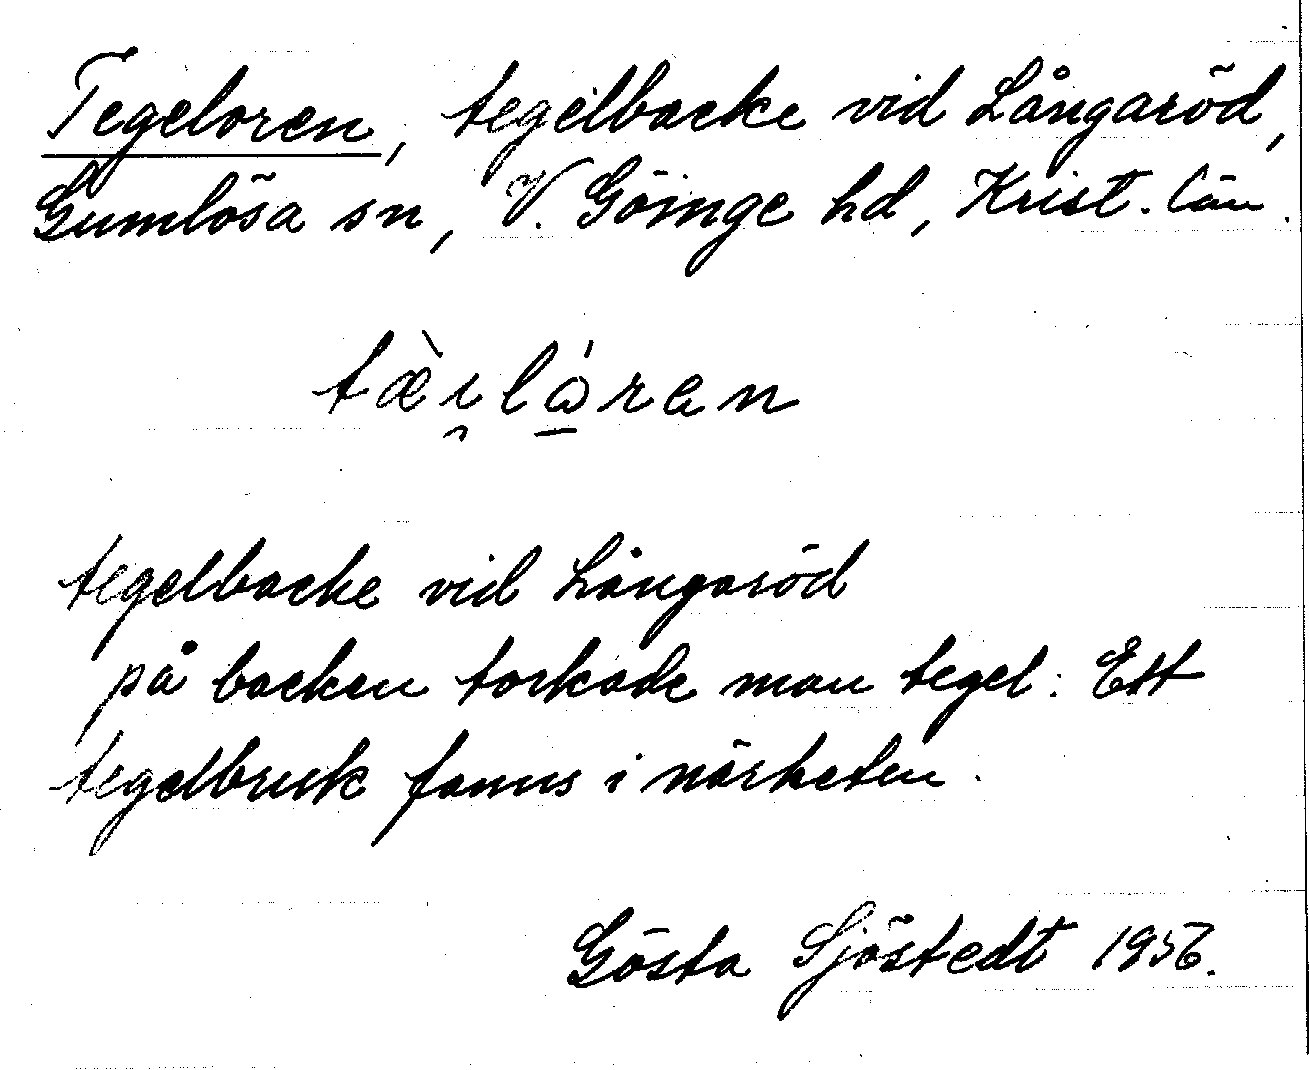 Tegeloren, tegelbacke vid Långaröd,
Gumlösa sn, V. Göinge hd, Krist. län.
tæ̀i̯lɷ̠́ren
tegelbacke vid Långaröd
på backen torkade man tegel. Ett
tegelbruk fanns i närheten.
Gösta Sjöstedt 1956.